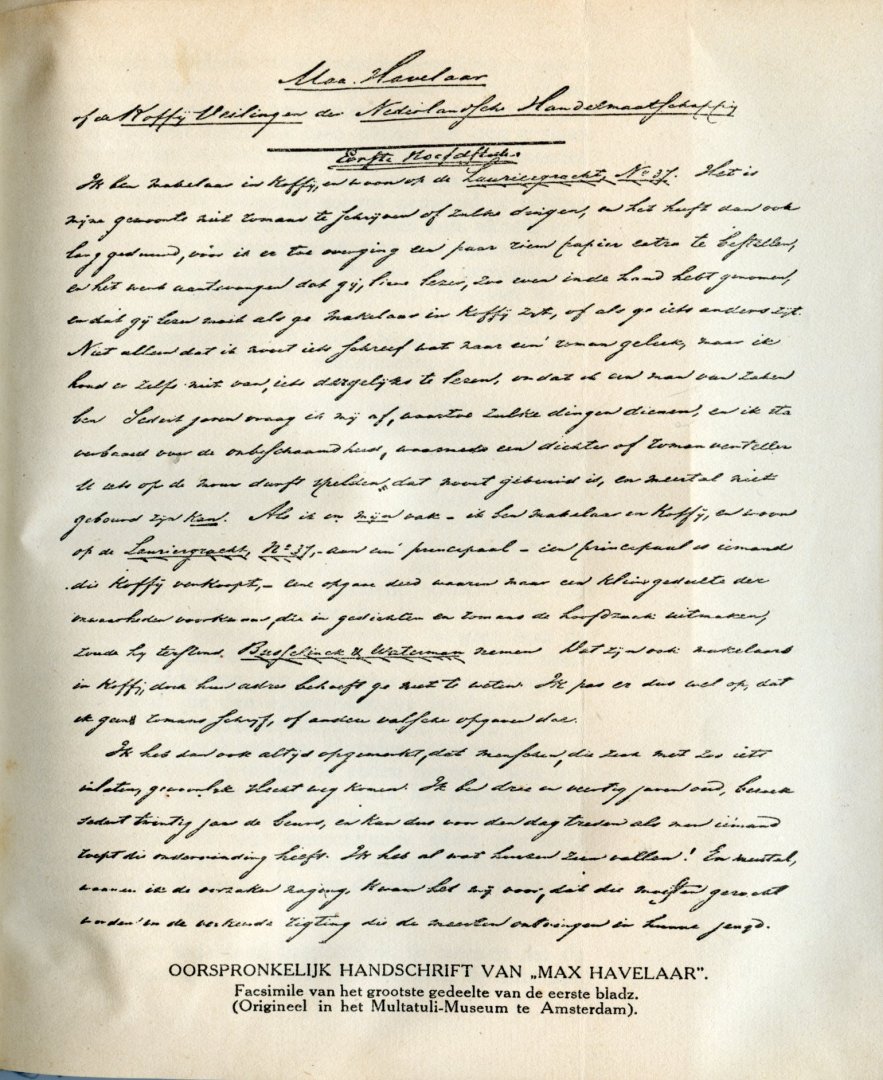 Max Havelaar
of de Koffij Veilingen der Nederlandsche Handelmaatschappij
Eerste Hoofdstuk.
Ik ben makelaar in koffij, en woon op de Lauriergracht, No 37. Het is
mijne gewoonte niet romans te schrijven of zulke dingen, en het heeft dan ook
lang geduurd, vóór ik er toe overging een paar riem papier extra te bestellen,
en het werk aantevangen dat gij, lieve lezer, zoo even in de hand hebt genomen,
en dat gij lezen moet als ge makelaar in koffij zijt, of als ge iets anders zijt.
Niet alleen dat ik nooit iets schreef wat naar een' roman geleek, maar ik
houd er zelfs niet van, iets dergelijks te lezen, omdat ik een man van zaken
ben Sedert jaren vraag ik mij af, waartoe zulke dingen dienen, en ik sta
verbaasd over de onbeschaamdheid, waarmede een dichter of romanverteller
U iets op de mouw durft spelden, dat nooit gebeurd is, en meestal niet
gebeurd zijn kan. Als ik in mijn vak – ik ben makelaar in Koffij, en woon
op de Lauriergracht, No 37, – aan een' principaal – een principaal is iemand
die koffij verkoopt, – eene opgave deed waarin maar een klein gedeelte der
onwaarheden voorkwam, die in gedichten en romans de hoofdzaak uitmaken,
zoude hij terstond Busselinck & Waterman nemen Dat zijn ook makelaars
in koffij, doch hun adres behoeft ge niet te weten. Ik pas er dus wel op, dat
ik geene romans schrijf, of andere valsche opgaven doe.
Ik heb dan ook altijd opgemerkt, dat menschen, die zich met zoo iets
inlaten, gewoonlijk slecht weg komen. Ik ben drie en veertig jaren oud, bezoek
sedert twintig jaar de beurs, en kan dus voor den dag treden als men iemand
roept die ondervinding heeft. Ik heb al wat huizen zien vallen! En meestal,
wanneer ik de oorzaken naging, kwam het mij voor, dat die moesten gezocht
worden in de verkeerde rigting die de meesten ontvingen in hunne jeugd.
OORSPRONKELIJK HANDSCHRIFT VAN „MAX HAVELAAR”.
Facsimile van het grootste gedeelte van de eerste bladz.
(Origineel in het Multatuli-Museum te Amsterdam).